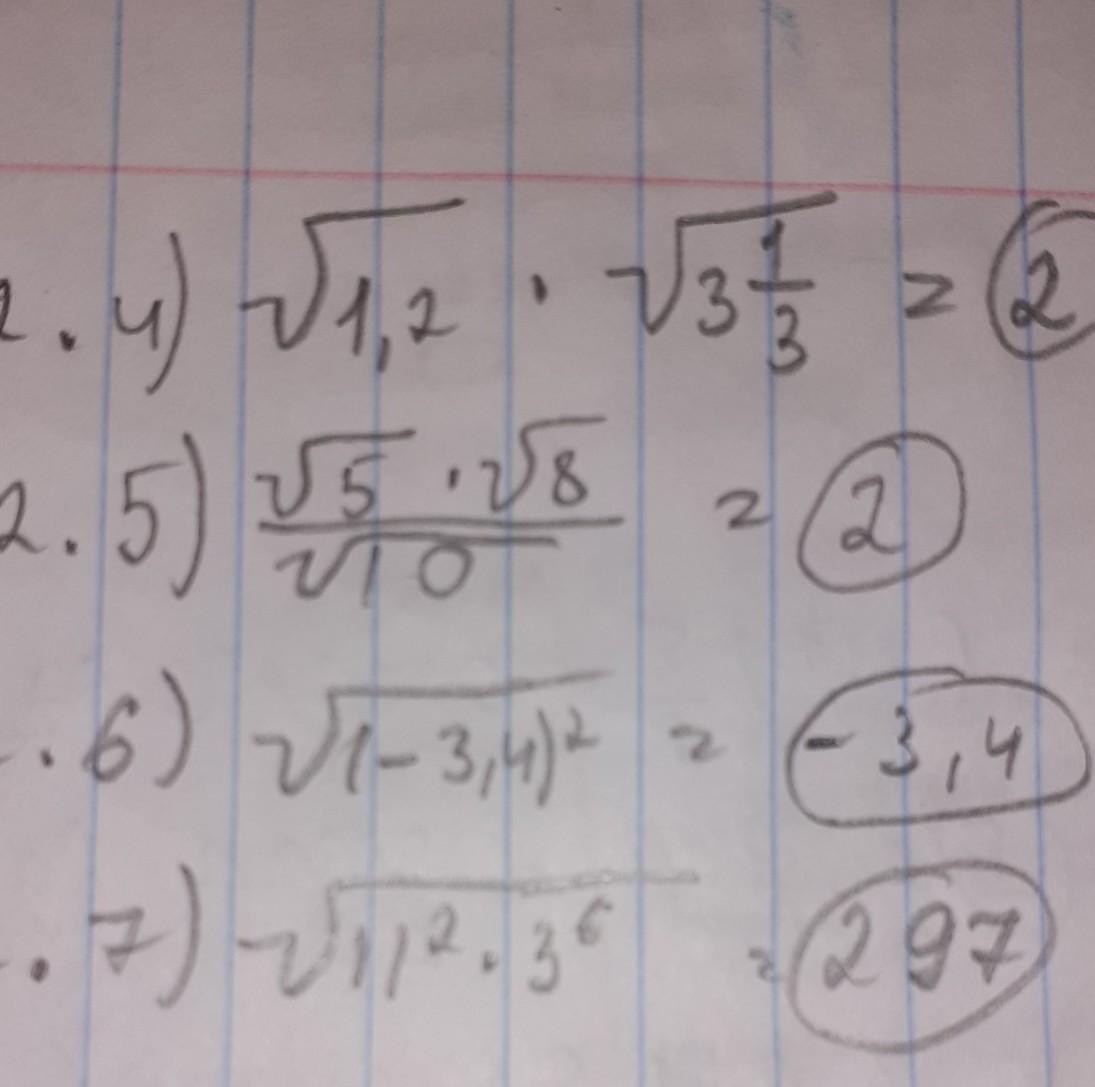 2.4) √1,2 · √3 1/3 = 2
2.5) √5 · √8 / √10 = 2
.6) √(-3,4)² = -3,4
.7) √11² · 3⁶ = 297